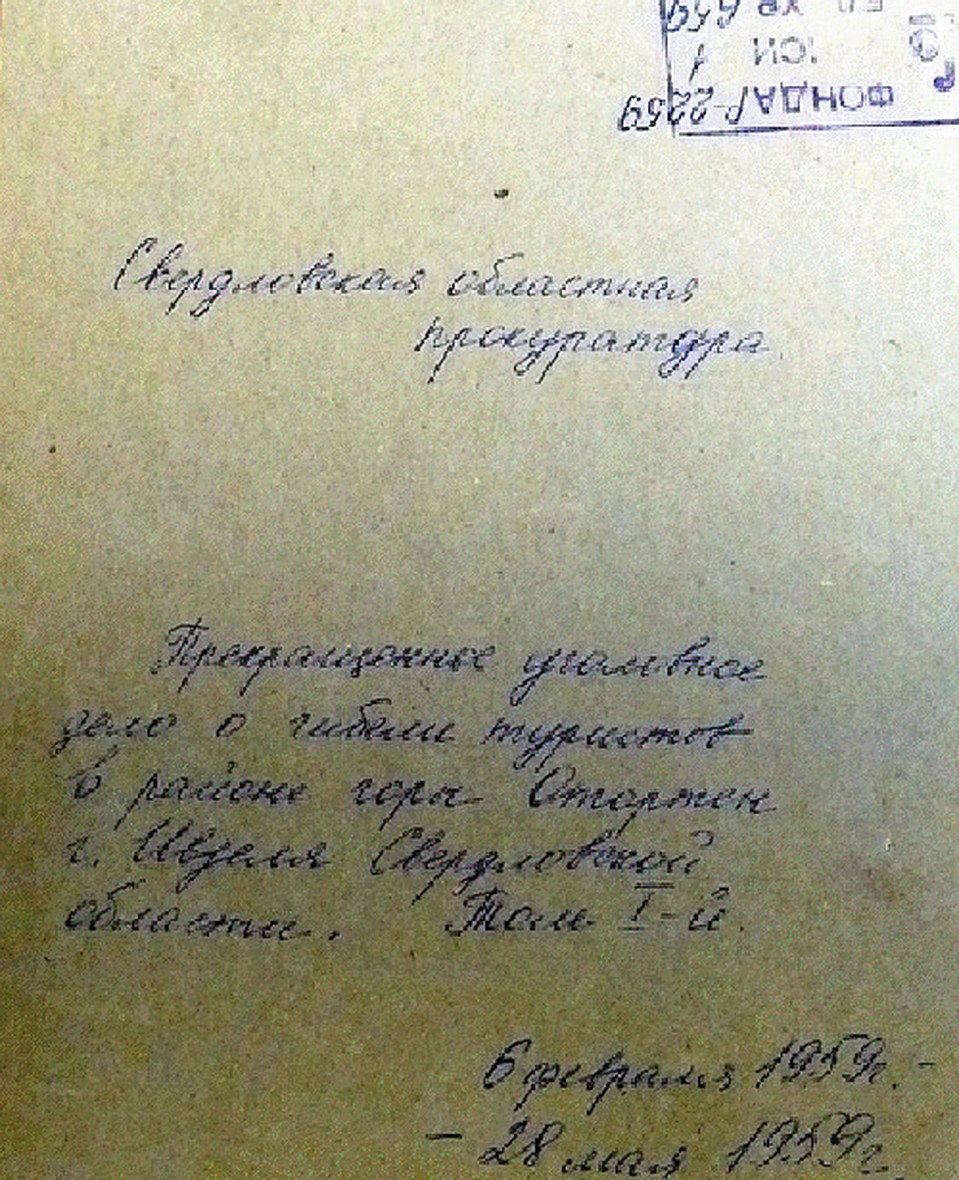 ФОНД Р-2259
1
659
Свердловская областная
прокуратура
Прекращенное уголовное
дело о гибели туристов
в районе горы Отортен
г. Ивделя Свердловской
области. Том I-й.
6 февраля 1959г. -
- 28 мая 1959г.